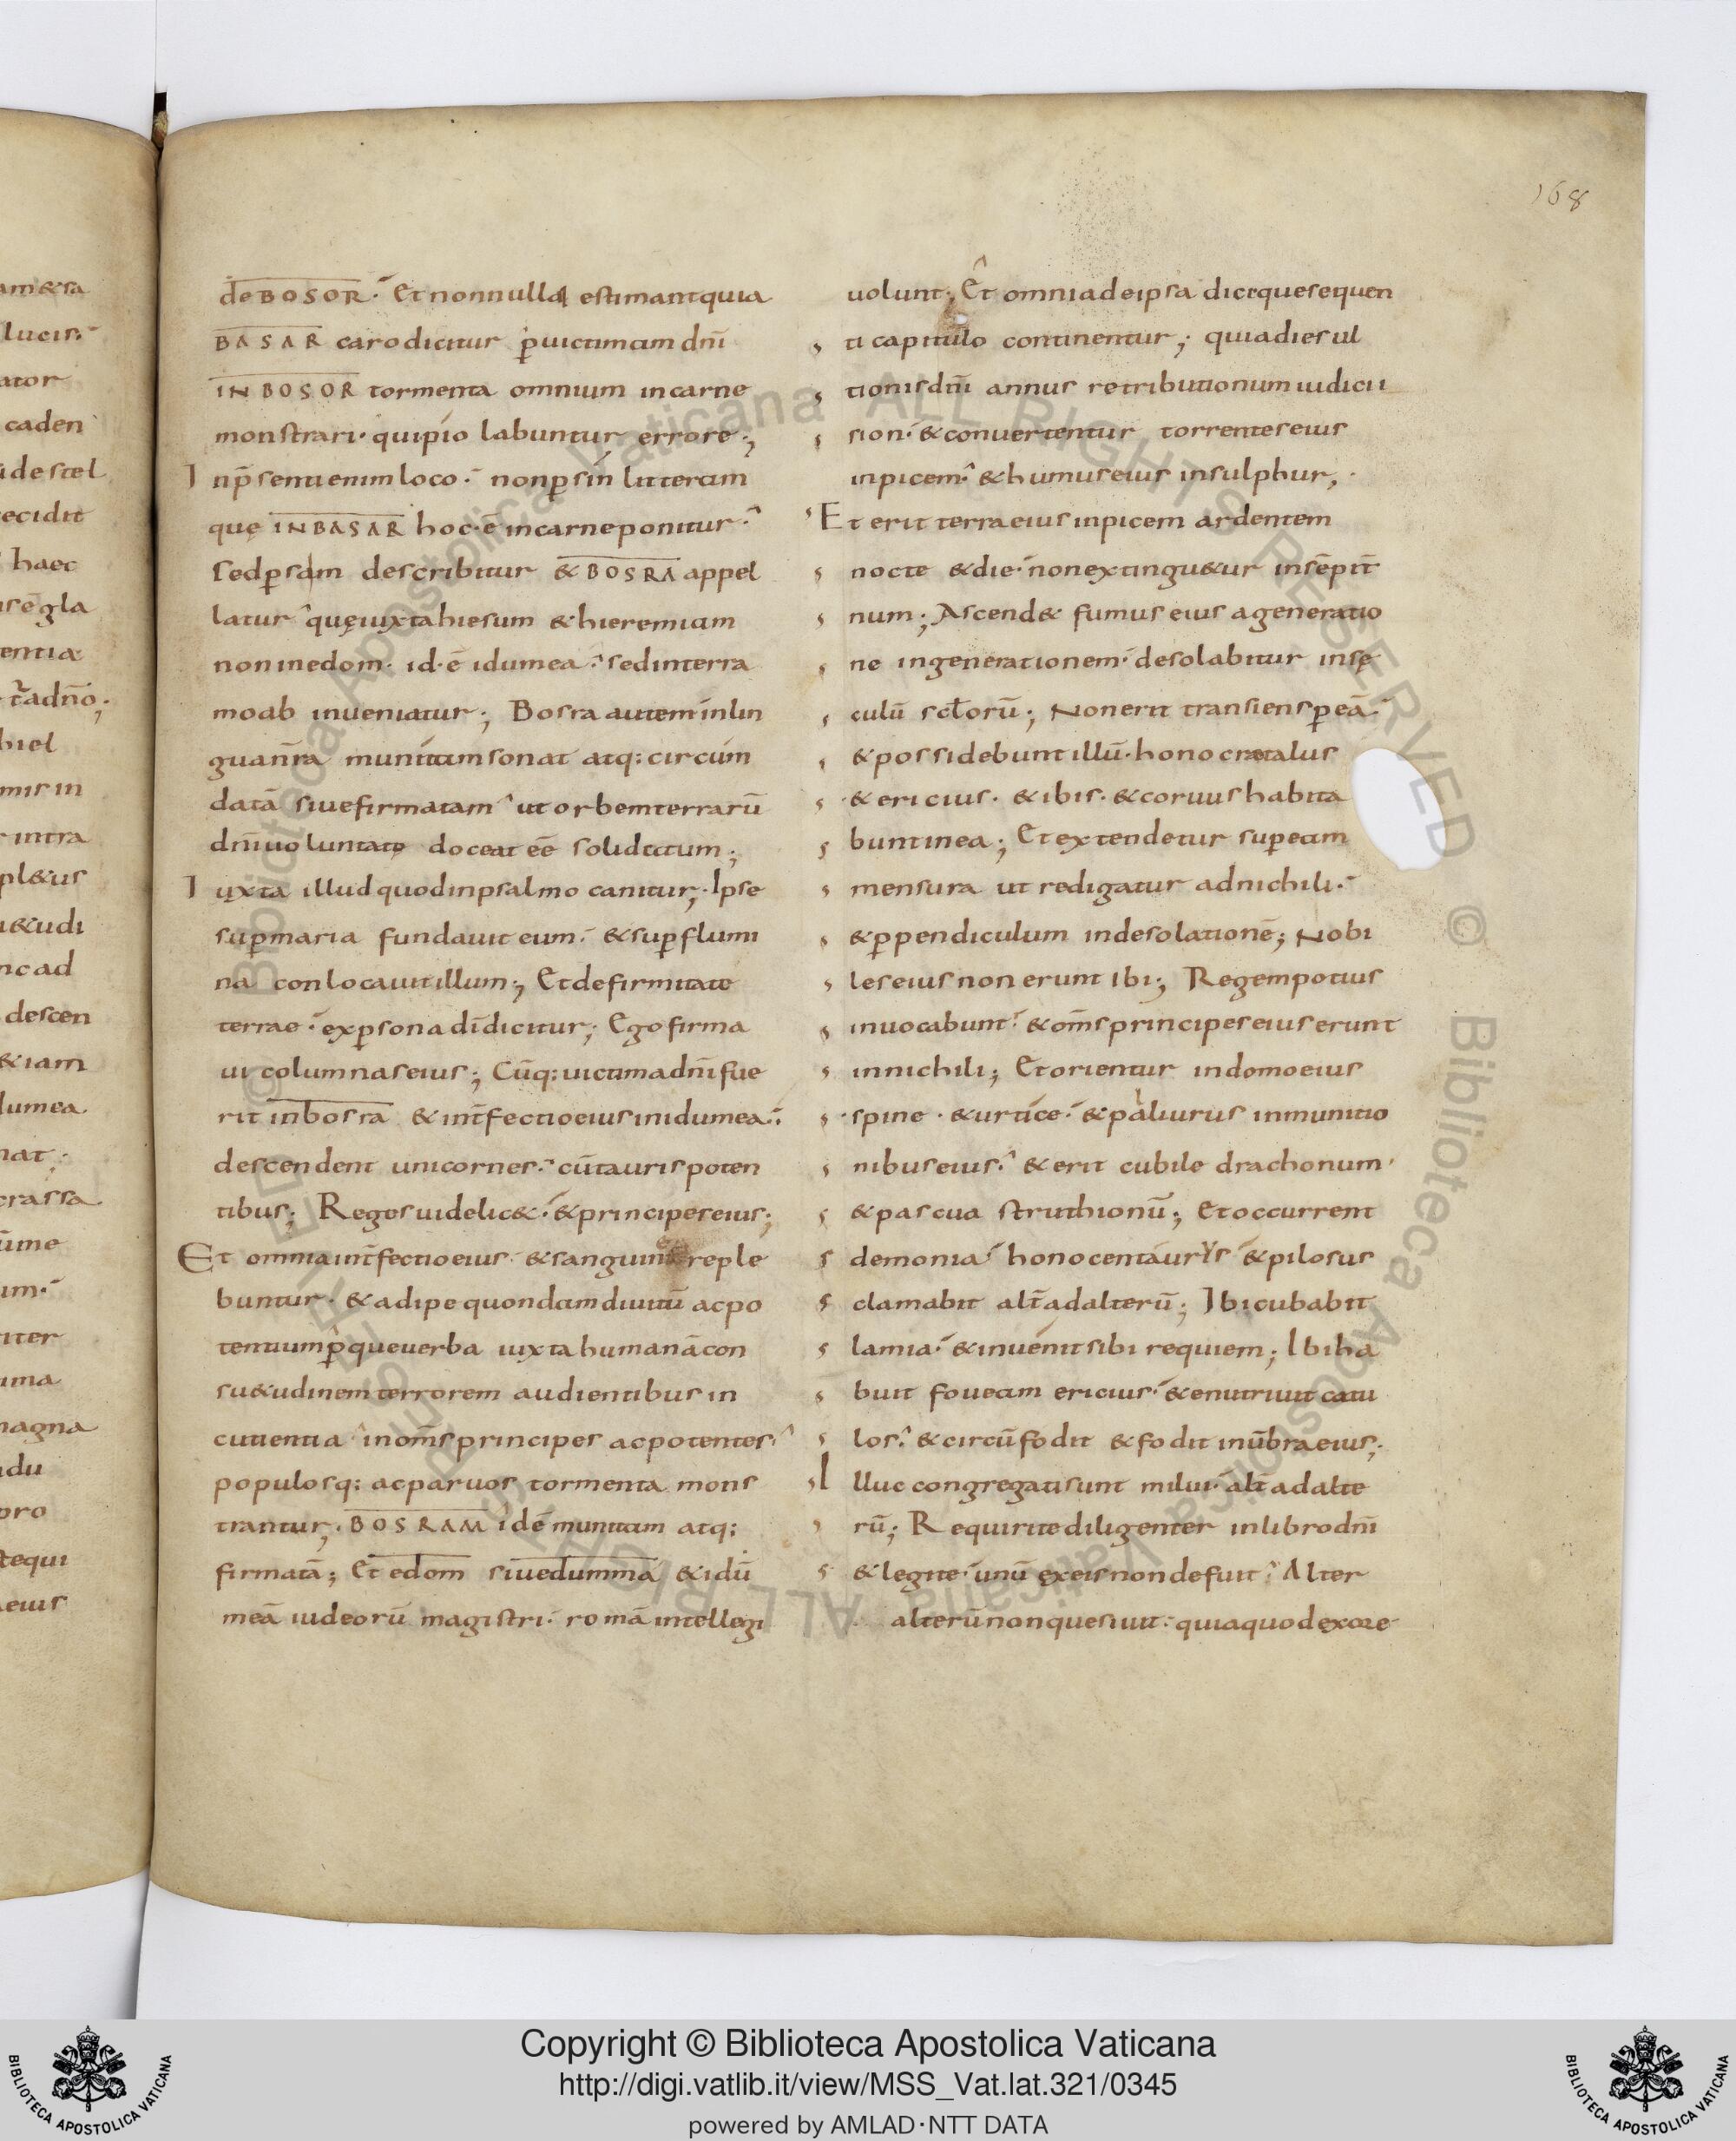 168
de BOSOR. Et nonnulli estimant quia
BASAR caro dicitur p uictimam dn̄i
IN BOSOR tormenta omnium incarne
monstrari. qui pio labuntur errore;
In p̄senti enim loco. non p sin litteram
quę INBASAR hoc·ē incarne ponitur.
sed p sam describitur & BOSRA appel
latur quę iuxta hiesum & hieremiam
non inedom. id·ē idumea. sed interra
moab inueniatur; Bosra autem inlin
gua nr̄a munitam sonat atq: circum
datā siue firmatam ut orbem terrarū
dn̄i uoluntate doceat eē soliditatum;
Iuxta illud quod inpsalmo canitur; Ipse
sup maria fundauit eum. & sup flumi
na conlocauit illum; Et de firmitate
terrae. ex psona dī dicitur; Ego firma
ui columnas eius; Cūq: uictima dn̄i fue
rit inbosra & int̄fectio eius inidumea.
descendent unicornes. cū tauris poten
tibus; Reges uidelic&. & principes eius;
Et omnia int̄fectio eius. & sanguine reple
buntur. & adipe quondam diuitū ac po
tentium p̄que uerba iuxta humanā con
su&udinem terrorem audientibus in
cutientia in om̄s principes ac potentes
populosq: ac paruos tormenta mons
trantur; BOSRAM idē munitam atq:
firmatā; Et edom siue dumma & idū
meā iudeorū magistri. romā intellegi
uolunt; Et omnia de ipsa dici que sequen
ti capitulo continentur; quia dies ul
tionis dn̄i annus retributionum iudicii
sion. & conuertentur torrentes eius
inpicem. & humus eius insulphur;
Et erit terra eius inpicem ardentem
nocte & die. non extingu&ur insēpit̄
num; Ascend& fumus eius a generatio
ne in generationem. desolabitur insę
culū sc̄lorū; Non erit transiens p eā
& possidebunt illū. honocratalus
& ericius. & ibis. & coruus habita
bunt in ea; Et extendetur sup eam
mensura ut redigatur ad nichili.
& ppendiculum in desolationē; Nobi
les eius non erunt ibi; Regem potius
inuocabunt. & om̄s principes eius erunt
in nichili; Et orientur in domo eius
spine. & urtice. & paliurus in munitio
nibus eius. & erit cubile drachonum
& pascua struthionū; Et occurrent
demonia honocentaurys & pilosus
clamabit alt̄ ad alterū; Ibi cubabit
lamia. & inuenit sibi requiem; Ibi ha
buit foueam ericius. & enutriuit catu
los. & circūfodit & fodit in ūbra eius;
Illuc congregati sunt milui. alt̄ ad alte
rū; Requirite diligenter in libro dn̄i
& legite. unū ex eis non defuit. Alter
alterū non quesiuit. quia quod ex ore
am&sa
lucis.
ator
caden
ecidit
haec
entia
biel
mis in
intra
pl&us
&udi
nc ad
descen
&iam
dumea
crassa
ūme
iter
magna
pro
tequi
eius
© Biblioteca Apostolica Vaticana ALL RIGHTS RESERVED © Biblioteca Apostolica Vaticana ALL RIGHTS RESERVED
Copyright © Biblioteca Apostolica Vaticana
http://digi.vatlib.it/view/MSS_Vat.lat.321/0345
powered by AMLAD·NTT DATA
BIBLIOTECA APOSTOLICA VATICANA
BIBLIOTECA APOSTOLICA VATICANA